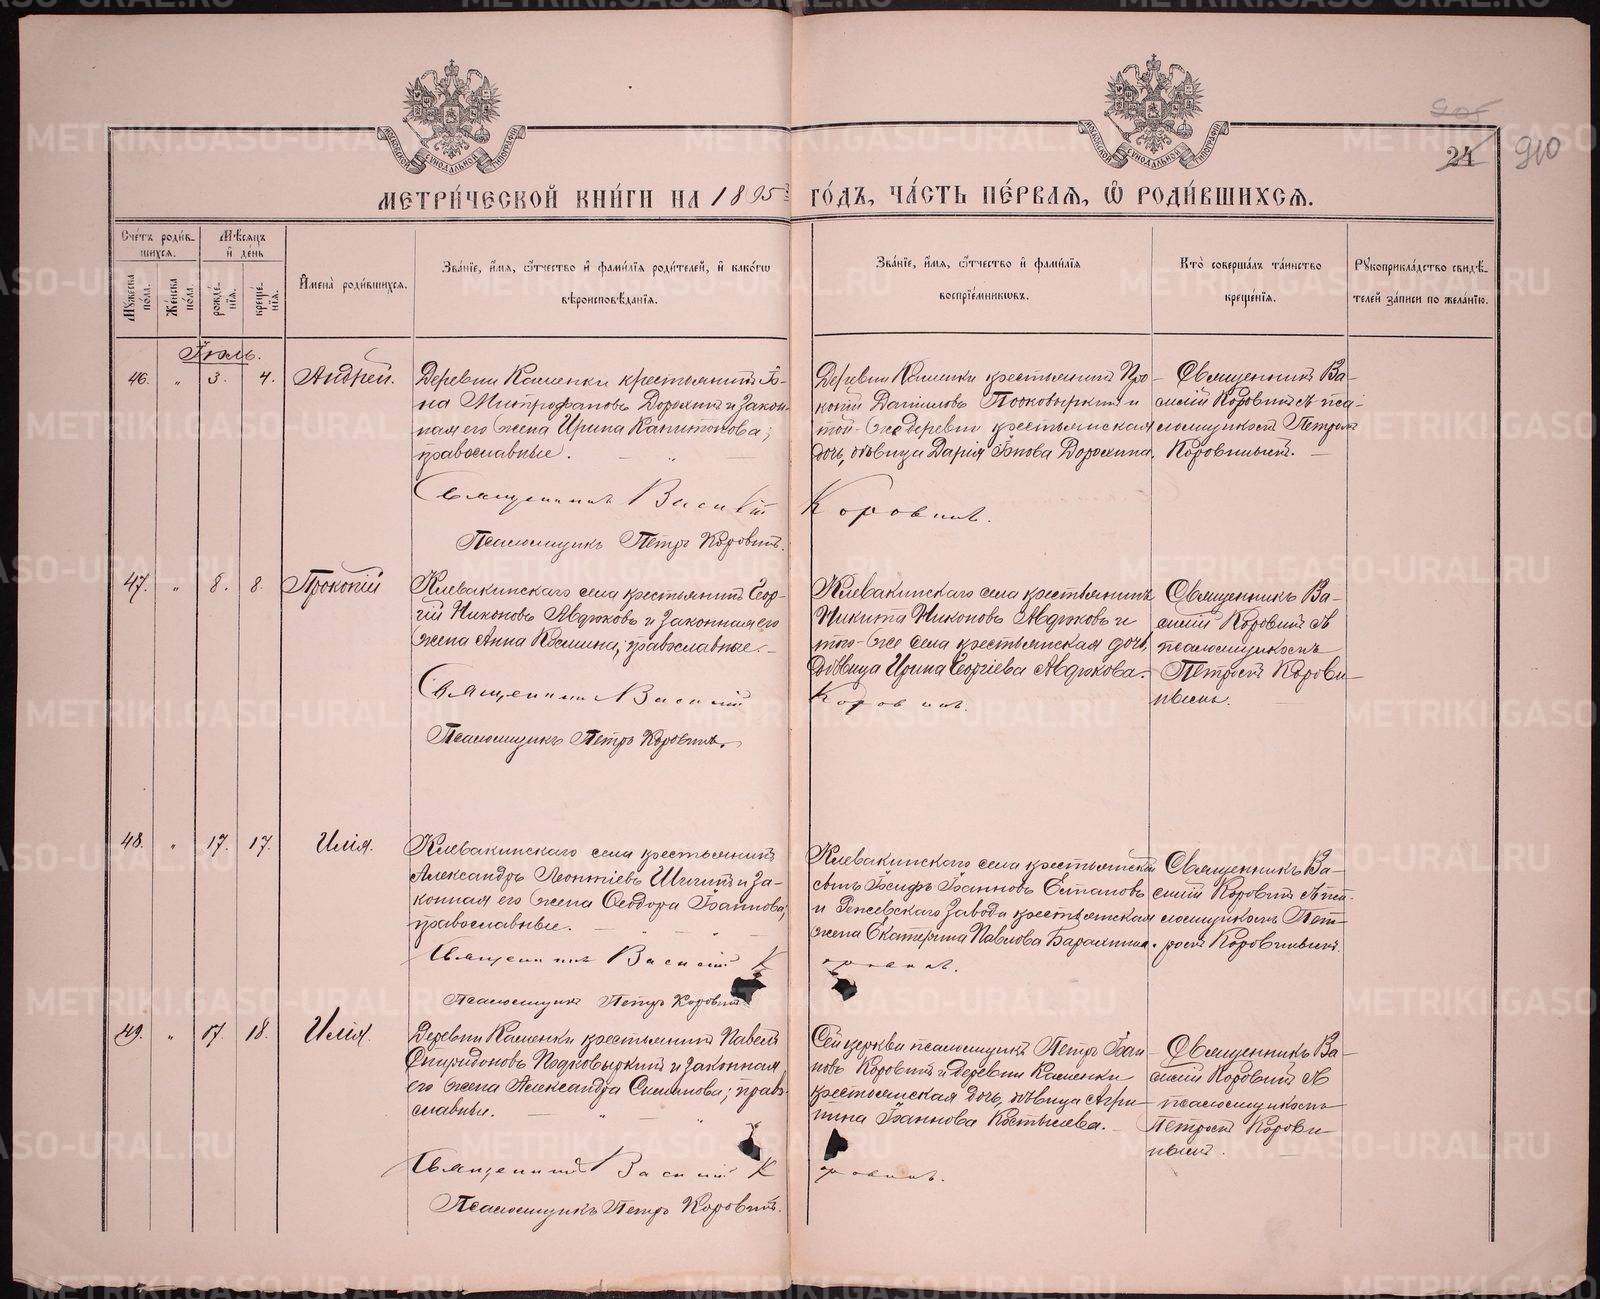 905
24 910
МЕТРИ́ЧЕСКОЙ КНИ́ГИ НА 1895 ГО́ДЪ, ЧА́СТЬ ПЕ́РВАѦ, Ѡ҆ РОДИ́ВШИХСѦ.
Сче́тъ роди́в-
шихсѧ.
Мѣ́сяцъ
и҆ де́нь
Мꙋ́жеска по́ла.
Же́нска по́ла.
рожде́-
нїѧ.
креще́-
нїѧ.
И҆мена̀ роди́вшихсѧ.
Зва́нїе, и҆́мѧ, ѻ҆́тчество и҆ фами́лїѧ роди́телей, и҆ како́гѡ
вѣроисповѣ́данїѧ.
Зва́нїе, и҆́мѧ, ѻ҆́тчество и҆ фами́лїѧ
воспрїе́мникѡвъ.
Кто̀ соверша́лъ та́инство
креще́нїѧ.
Рꙋкоприкла́дство свидѣ́-
телей за́писи по жела́нїю.
Іюль.
46. „ 3. 4. Андрей.
Деревни Каменки крестьянинъ Іо-
на Митрофановъ Дорохинъ и закон-
ная его жена Ирина Капитонова;
православные.
Деревни Каменки крестьянинъ Про-
копій Даниловъ Подковыркинъ и
той-же деревни крестьянская
дочь, дѣвица Дарія Іонова Дорохина.
Священникъ Ва-
силій Коровинъ съ пса-
ломщикомъ Петромъ
Коровинымъ.
Священникъ Василій Коровинъ.
Псаломщикъ Петръ Коровинъ.
47. „ 8. 8. Прокопій
Клевакинскаго села крестьянинъ Геор-
гій Никоновъ Авдюковъ и законная его
жена Анна Космина; православные.
Клевакинскаго села крестьянинъ
Никита Никоновъ Авдюковъ и
того-же села крестьянская дочь,
дѣвица Ирина Георгіева Авдюкова.
Священникъ Ва-
силій Коровинъ съ
псаломщикомъ
Петромъ Корови-
нымъ.
Священникъ Василій Коровинъ.
Псаломщикъ Петръ Коровинъ.
48. „ 17. 17. Илія.
Клевакинскаго села крестьянинъ
Александръ Леонтіевъ Шигинъ и за-
конная его жена Ѳеодора Іоаннова;
православные.
Клевакинскаго села крестьянскій
сынъ Іосифъ Іоанновъ Естаповъ
и Режевскаго завода крестьянская
жена Екатерина Павлова Барахнина.
Священникъ Ва-
силій Коровинъ съ пса-
ломщикомъ Пет-
ромъ Коровинымъ.
Священникъ Василій К оровинъ.
Псаломщикъ Петръ Коровинъ
49. „ 17. 18. Илія.
Деревни Каменки крестьянинъ Павелъ
Спиридоновъ Подковыркинъ и законная
его жена Александра Симанова; право-
славные.
Сей церкви псаломщикъ Петръ Іоан-
новъ Коровинъ и деревни Каменки
крестьянская дочь, дѣвица Агри-
пина Іоаннова Костылева.
Священникъ Ва-
силій Коровинъ съ
псаломщикомъ
Петромъ Корови-
нымъ.
Священникъ Василій К оровинъ.
Псаломщикъ Петръ Коровинъ.